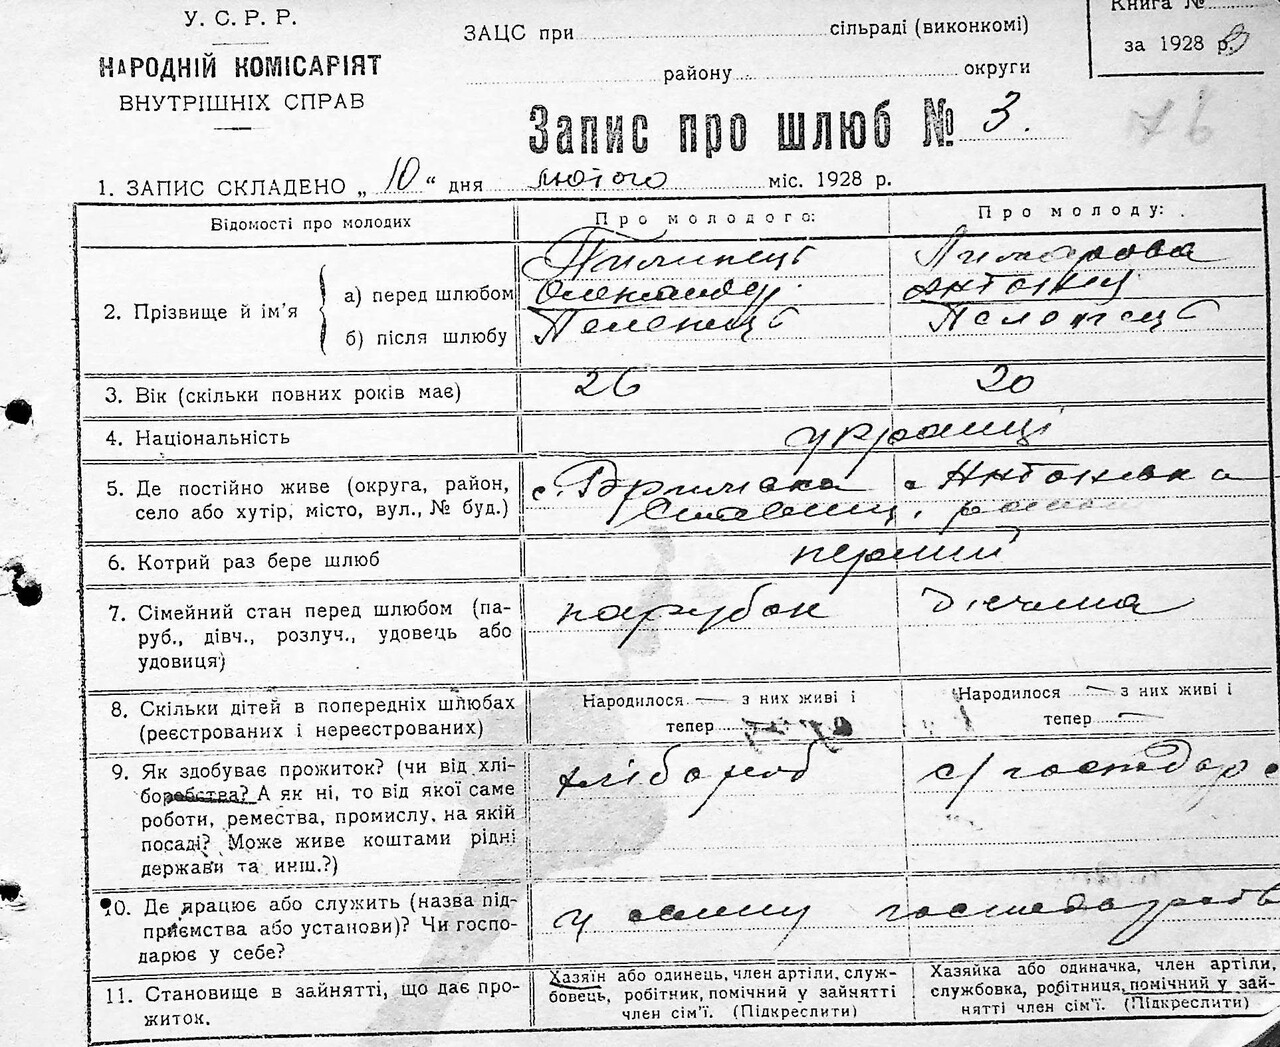 У. С. Р. Р.
НАРОДНІЙ КОМІСАРІЯТ
ВНУТРІШНІХ СПРАВ
ЗАЦС при сільраді (виконкомі)
району округи
Книга №
за 1928 р.
Запис про шлюб № 3.
1. ЗАПИС СКЛАДЕНО „ 10 “ дня лютого міс. 1928 р.
Відомості про молодих
Про молодого:
Про молоду:
2. Прізвище й ім’я
а) перед шлюбом
б) після шлюбу
Олександр
Антонина
3. Вік (скільки повних років має)
26
20
4. Національність
українці
5. Де постійно живе (округа, район,
село або хутір, місто, вул., № буд.)
с.
с Антонівка
6. Котрий раз бере шлюб
перший
7. Сімейний стан перед шлюбом (па-
руб., дівч., розлуч., удовець або
удовиця)
парубок
дівчина
8. Скільки дітей в попередніх шлюбах
(реєстрованих і нереєстрованих)
Народилося — з них живі і
тепер
Народилося — з них живі і
тепер —
9. Як здобуває прожиток? (чи від хлі-
боробства? А як ні, то від якої саме
роботи, ремества, промислу, на якій
посаді? Може живе коштами рідні
держави та инш.?)
хлібороб
с/господар
10. Де працює або служить (назва під-
приємства або установи)? Чи госпо-
дарює у себе?
у
11. Становище в зайнятті, що дає про-
житок.
Хазяїн або одинець, член артіли, служ-
бовець, робітник, помічний у зайнятті
член сім’ї. (Підкреслити)
Хазяйка або одиначка, член артіли,
службовка, робітниця, помічний у зай-
нятті член сім’ї. (Підкреслити)